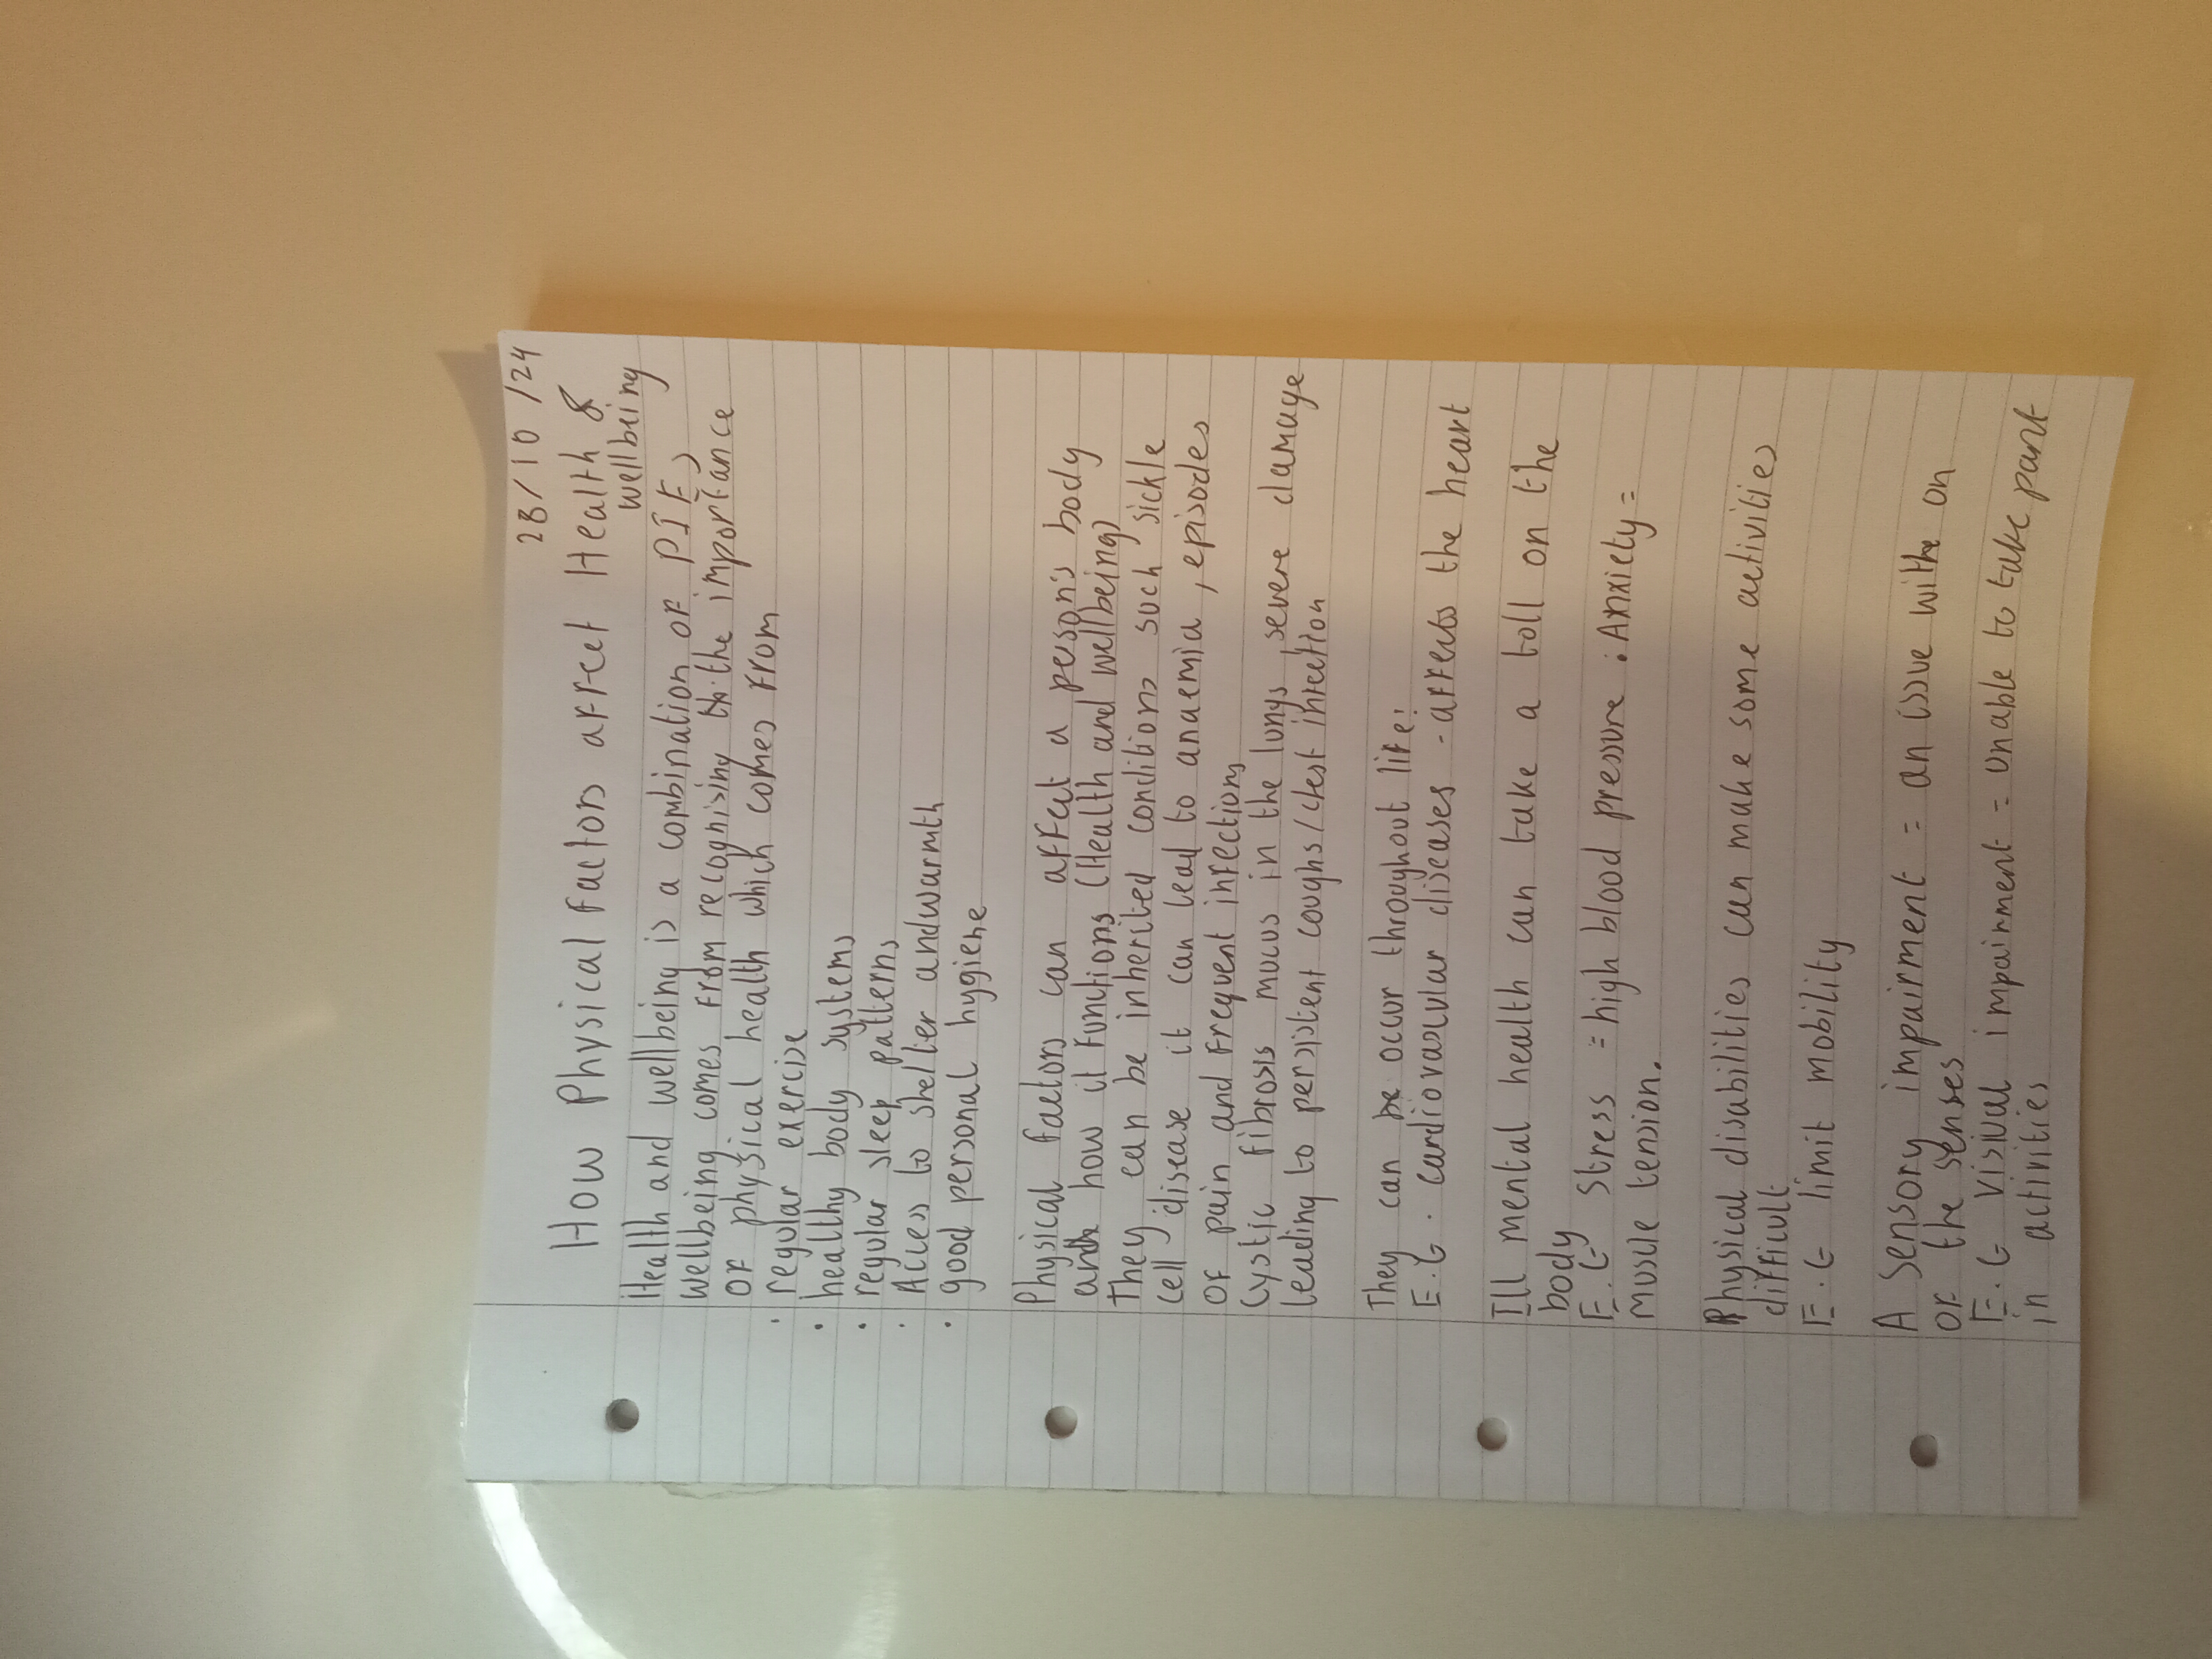 28/10/24
How Physical factors affect Health &
wellbeing
Health and wellbeing is a combination of PIES
wellbeing comes from recognising the importance
of physical health which comes from
· regular exercise
· healthy body systems
· regular sleep patterns
· Access to shelter and warmth
· good personal hygiene
Physical factors can affect a person's body
and how it functions (Health and wellbeing)
They can be inherited conditions such sickle
cell disease it can lead to anaemia, episodes
of pain and frequent infections
Cystic fibrosis mucus in the lungs, severe damage
leading to persistent coughs / chest infection
They can be occur throughout life:
E.G. cardiovascular diseases - affects the heart
Ill mental health can take a toll on the
body
E.G Stress = high blood pressure . Anxiety =
muscle tension.
Physical disabilities can make some activities
difficult
E.G limit mobility
A sensory impairment = an issue with on
of the senses
E.G visiual impairment = unable to take part
in activities